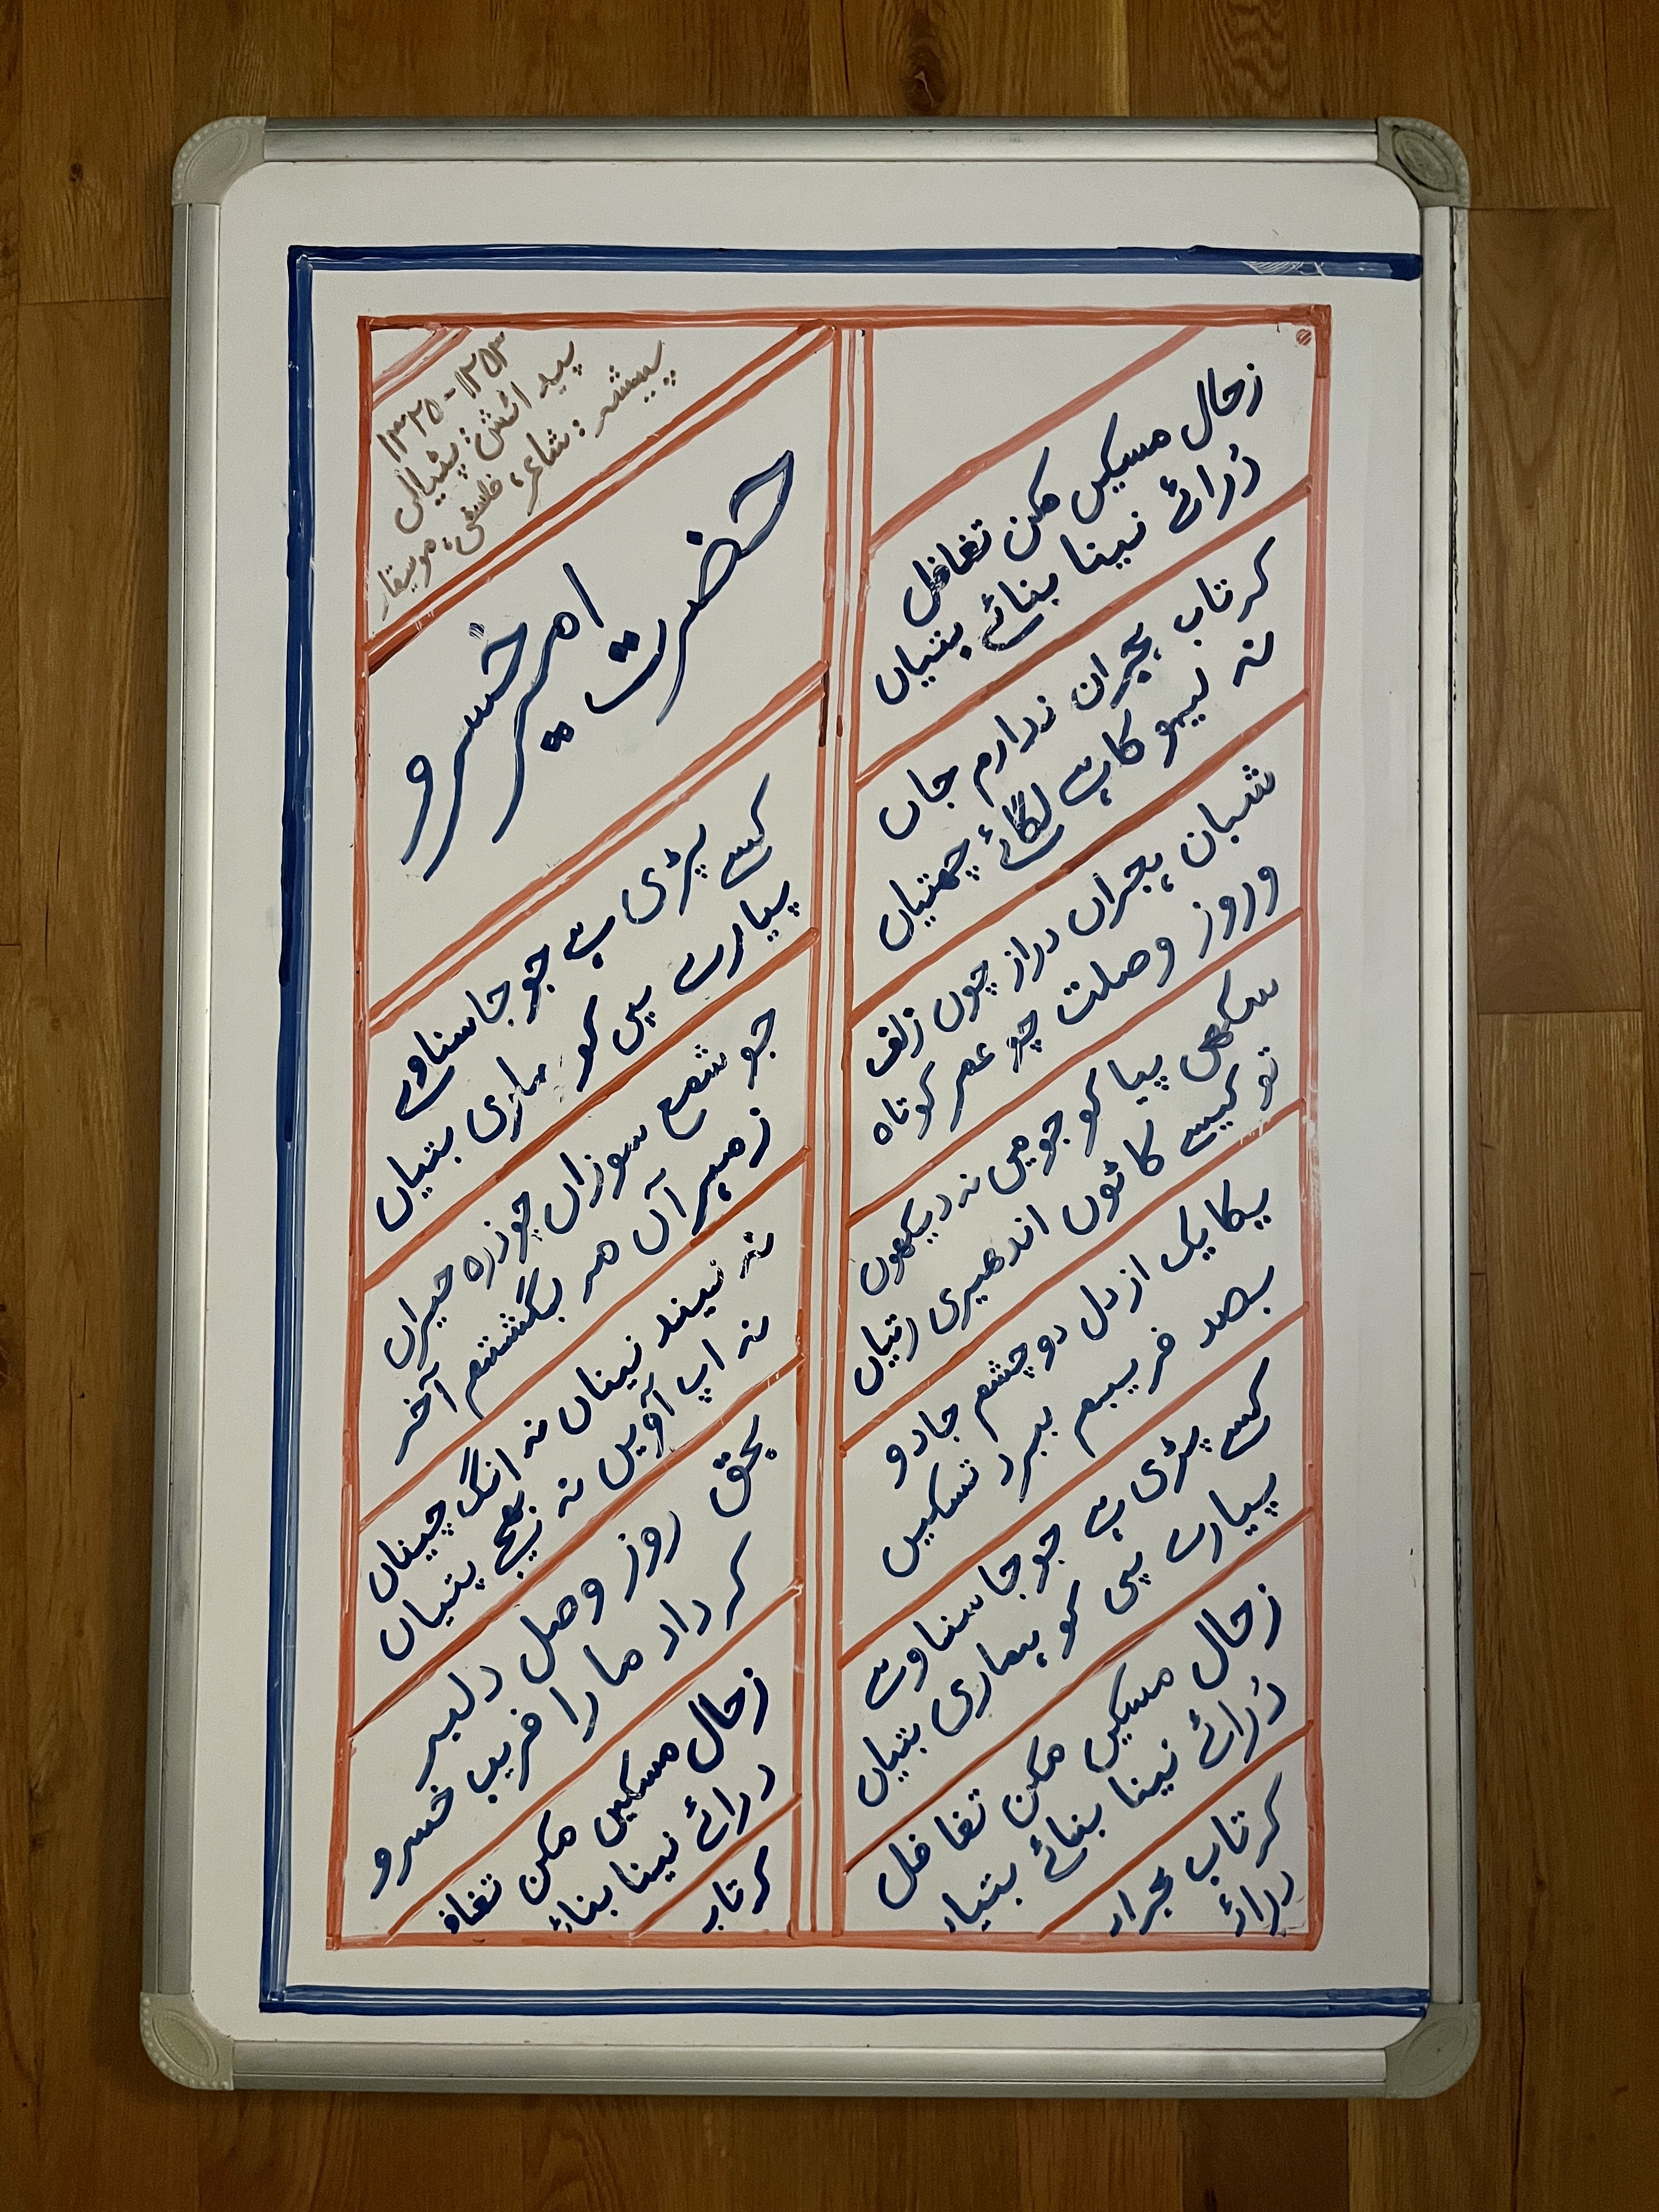 زحال مسکیں مکن تغافل
دُرائے نینا بنائے بتیاں
کہ تاب ہجران ندارم جاں
نہ لیہو کاہے لگائے چھتیاں
شبان ہجراں دراز چوں زلف
وروز وصلت چو عمر کوتاہ
سکھی پیا کو جو میں نہ دیکھوں
تو کیسے کاٹوں اندھیری رتیاں
یکایک از دل دو چشم جادو
بصد فریبم ببرد تسکیں
کسے پڑی ہے جو جا سناوے
پیارے پی کو ہماری بتیاں
زحال مسکیں مکن تغافل
دُرائے نینا بنائے بتیاں
کہ تاب ہجراں
درائے
۱۲۵۳-۱۳۲۵
پیدائش: پٹیالی
پیشہ: شاعر، فلسفی، موسیقار
حضرت امیر خسرو
کسے پڑی ہے جو جا سناوے
پیارے پی کو ہماری بتیاں
جو شمع سوزاں چو ذرہ حیراں
زمہر آں مہ بگشتم آخر
نہ نیند نیناں نہ انگ چیناں
نہ آپ آویں نہ بھیجے پتیاں
بحق روز وصل دلبر
کہ داد ما را فریب خسرو
زحال مسکیں مکن تغافل
درائے نینا بنائے
کہ تاب